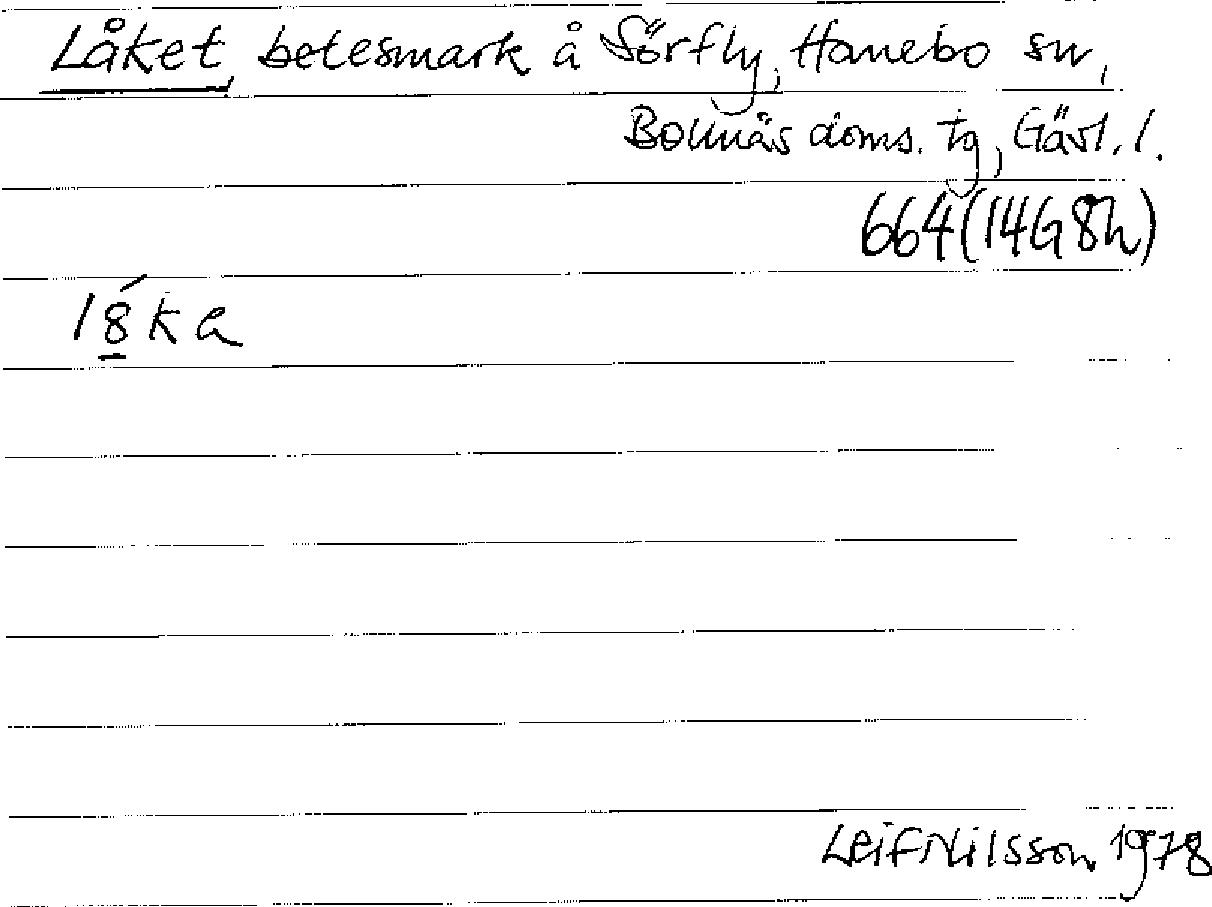 Låket, betesmark å Sörfly, Hanebo sn,
Bollnäs doms. tg, Gävl. l.
664 (14G 8h)
Leif Nilsson 1978